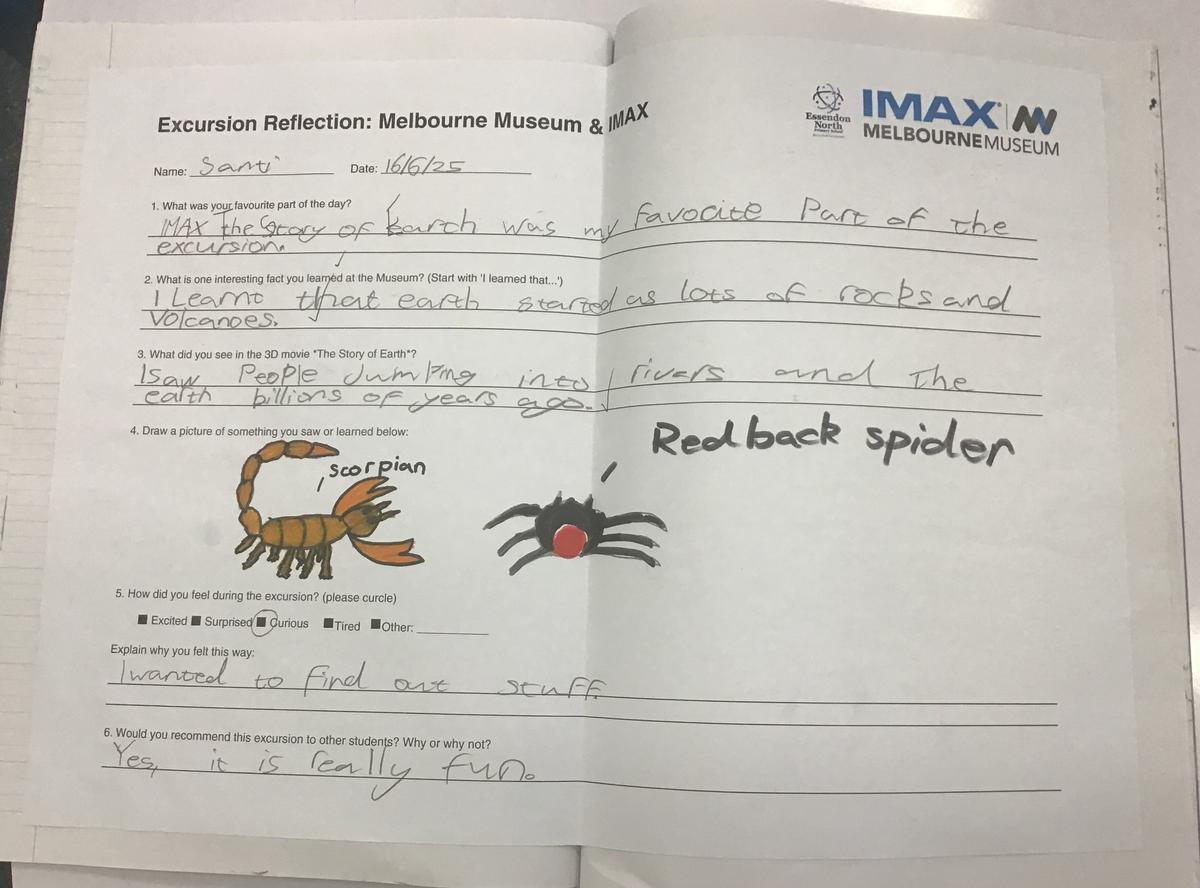 Excursion Reflection: Melbourne Museum & IMAX
Essendon
North
Primary School
IMAX
MELBOURNEMUSEUM
Name: Santi Date: 16/6/25
1. What was your favourite part of the day?
IMAX The Story of Earth was my favocite Part of the
excursion.
2. What is one interesting fact you learned at the Museum? (Start with 'I learned that...')
I Learnt that earth started as lots of rocks and
Volcanoes.
3. What did you see in the 3D movie "The Story of Earth"?
I saw People Jumping into rivers and The
earth billions of years ago.
4. Draw a picture of something you saw or learned below:
scorpian
Redback spider
5. How did you feel during the excursion? (please curcle)
Excited Surprised Curious Tired Other:
Explain why you felt this way:
I wanted to find out stuff
6. Would you recommend this excursion to other students? Why or why not?
Yes, it is really fun.